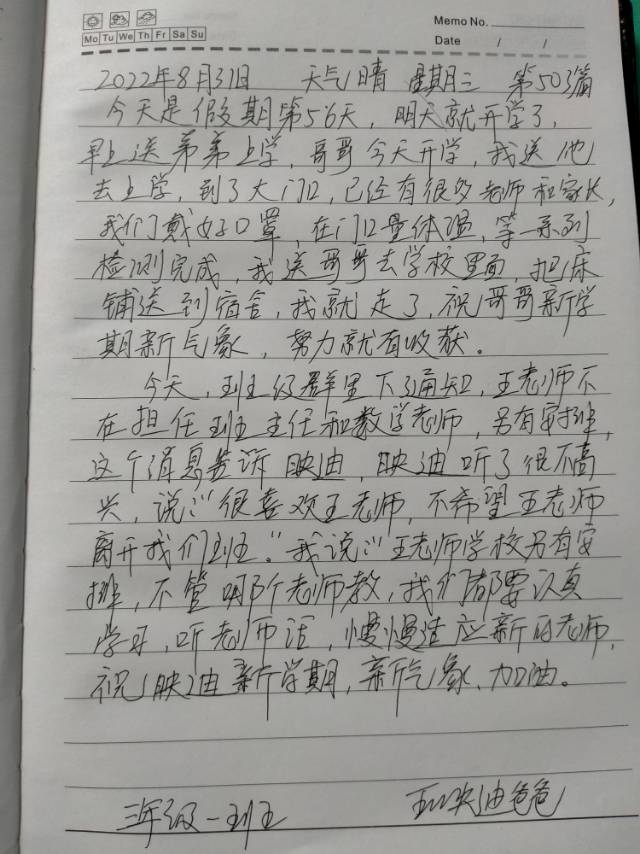 Memo No.
Mo Tu We Th Fr Sa Su
Date / /
2022年8月31日 天气晴 星期三 第503篇
今天是假期第56天，明天就开学了，
早上送弟弟上学，哥哥今天开学，我送他
去上学，到了大门口，已经有很多老师和家长，
我们戴好口罩，在门口量体温，等一系列
检测完成，我送哥哥去学校里面，把床
铺送到宿舍，我就走了，祝哥哥新学
期新气象，努力就有收获。
今天，班级群里下了通知，王老师不
在担任班主任和数学老师，另有安排，
这个消息告诉映迪，映迪听了很不高
兴，说：“很喜欢王老师，不希望王老师
离开我们班。”我说：“王老师学校另有安
排，不管哪个老师教，我们都要认真
学习，听老师话，慢慢适应新的老师，
祝映迪新学期，新气象、加油。
三年级一班
映迪爸爸